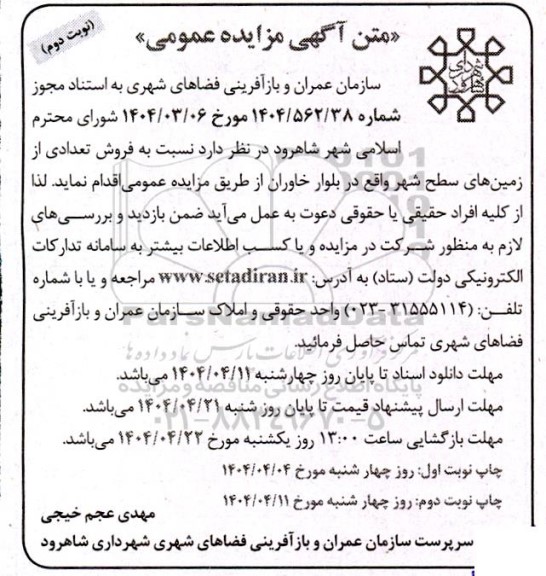 (نوبت دوم)
«متن آگهی مزایده عمومی»
سازمان عمران و بازآفرینی فضاهای شهری به استناد مجوز
شماره ۱۴۰۴/۵۶۲/۳۸ مورخ ۱۴۰۴/۰۳/۰۶ شورای محترم
اسلامی شهر شاهرود در نظر دارد نسبت به فروش تعدادی از
زمین‌های سطح شهر واقع در بلوار خاوران از طریق مزایده عمومی اقدام نماید. لذا
از کلیه افراد حقیقی یا حقوقی دعوت به عمل می‌آید ضمن بازدید و بررسی‌های
لازم به منظور شرکت در مزایده و یا کسب اطلاعات بیشتر به سامانه تدارکات
الکترونیکی دولت (ستاد) به آدرس: www.setadiran.ir مراجعه و یا با شماره
تلفن: (۳۱۵۵۵۱۱۴-۰۲۳) واحد حقوقی و املاک سازمان عمران و بازآفرینی
ParsNamadData
فضاهای شهری تماس حاصل فرمائید.
مهلت دانلود اسناد تا پایان روز چهارشنبه ۱۴۰۴/۰۴/۱۱ می‌باشد.
پایگاه اطلاع رسانی مناقصه و مزایده
مهلت ارسال پیشنهاد قیمت تا پایان روز شنبه ۱۴۰۴/۰۴/۲۱ می‌باشد.
۰۲۱-۸۸۳۴۹۶۷۰-۵
مهلت بازگشایی ساعت ۱۳:۰۰ روز یکشنبه مورخ ۱۴۰۴/۰۴/۲۲ می‌باشد.
چاپ نوبت اول: روز چهار شنبه مورخ ۱۴۰۴/۰۴/۰۴
چاپ نوبت دوم: روز چهار شنبه مورخ ۱۴۰۴/۰۴/۱۱
مهدی عجم خیجی
سرپرست سازمان عمران و بازآفرینی فضاهای شهری شهرداری شاهرود